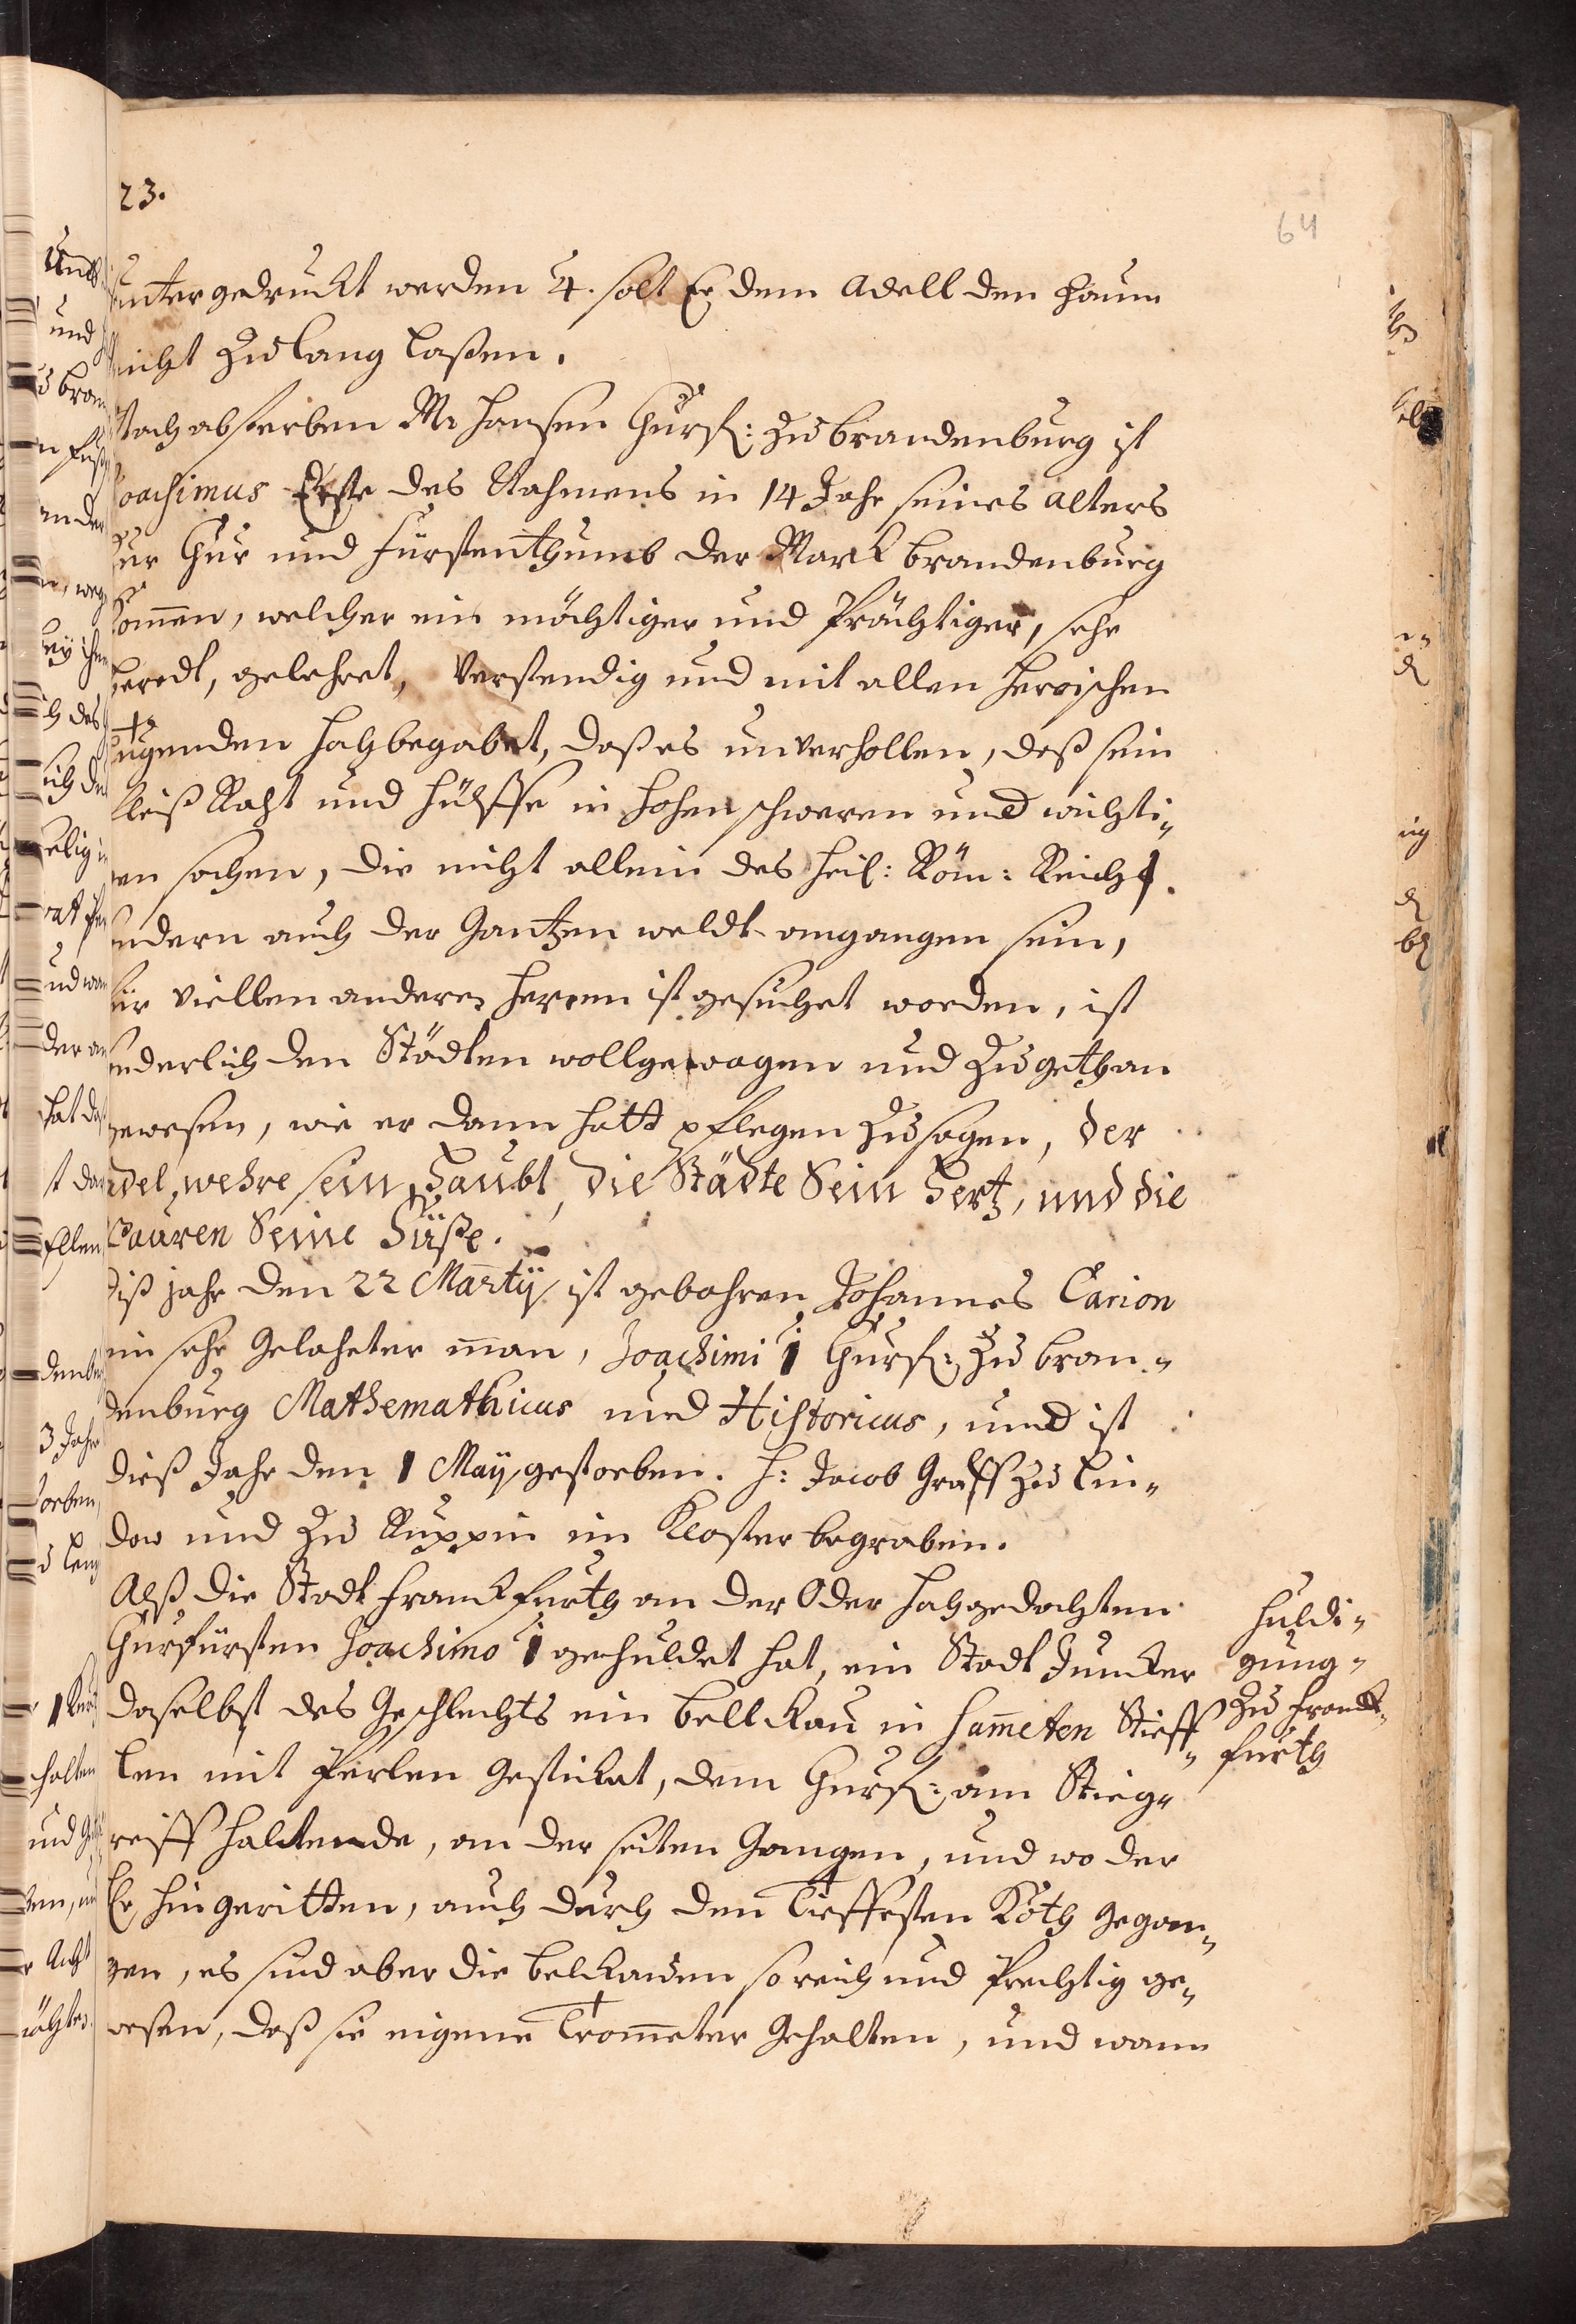 23.
64
untergedruckt werden 4. solt Er dem Adell den Zaum
nicht zu lang laßen.
Nach absterben M. Hansen Churf: zu Brandenburg ist
Joachimus Erste des Nahmens in 14 Jahr seines alters
zur Chur und Fürstenthumb der Marck Brandenburg
kom̄en, welcher ein mächtiger und Prächtiger, sehr
beredt, gelehret, Verstendig und mit allen Heroischen
Tugenden hochbegabet, daß es unverhollen, daß sein
fleiß Raht und Hülffe in hohen schweren und wichti„
gen sachen, die nicht allein des Heil: Röm: Reichs.
sondern auch der Gantzen weldt angangen sein,
für viellen anderen Herren ist gesuchet worden, ist
sonderlich den Städten wollgewogen und zugethan
gewesen, wie er dann hatt pflegen zu sagen, der
Adel, wehre sein Haubt, die Städte Sein Hertz, und die
Bauren Seine Füße.
diß jahr den 22 Martij ist gebohren Johannes Carion
ein sehr Gelahrter man, Joachimi 1 Churf: zu Bran„
denburg Mathemathicus und Historicus, und ist
dieß Jahr den 1 Maij gestorben. H: Jacob Graff zu Lin„
dow und zu Ruppin im Kloster begraben.
Alß die Stadt Franckfurth an der Oder hochgedachten
Churfürsten Joachimo 1 gehuldet hat, ein Stadt Juncker
daselbst des Geschlechts ein Bellkau in Sam̄eten Stieff„
len mit Perlen Gestickat, dem Churf: am Stieg„
reiff haltende, an der seiten Gangen, und wo der
Er hingeritten, auch durch den Tieffesten Koth Gegan„
gen, es sind aber die Belckawen so reich und Prechtig ge„
wesen, daß sie eigene Trom̄eter Gehalten, und wann
Huldi„
gung„
zu Franck„
furth